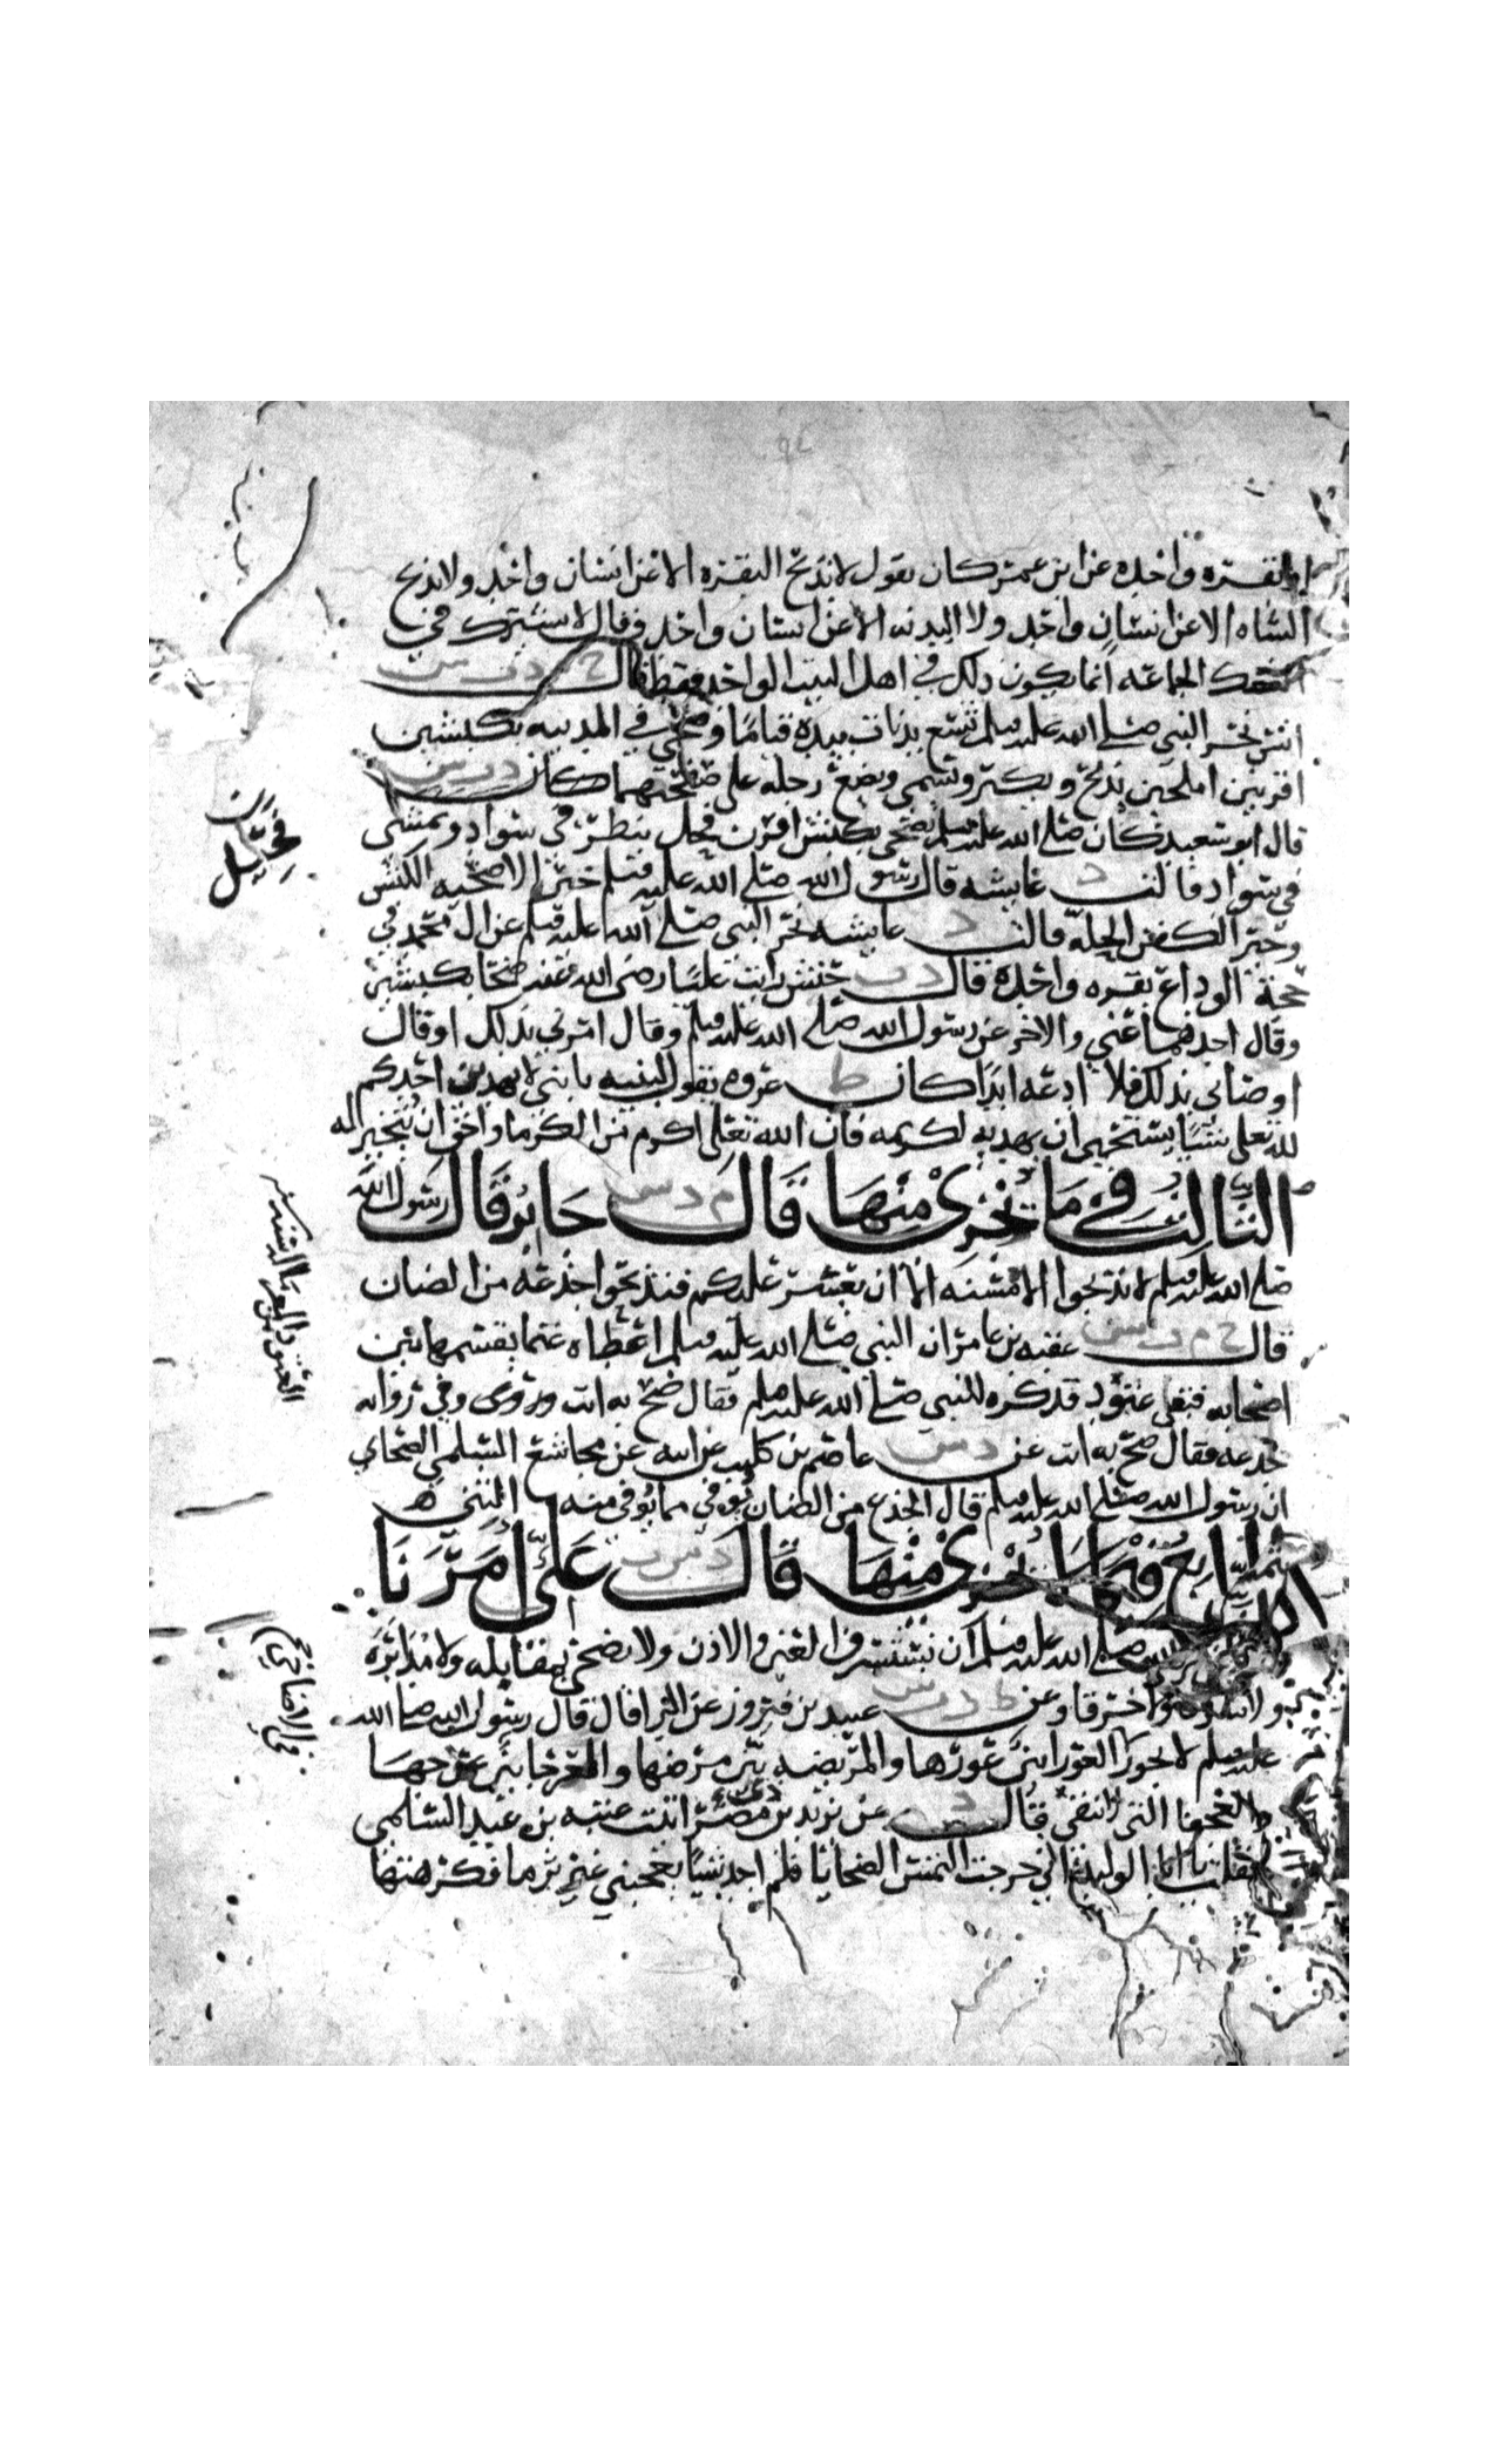 او بقره واحده عن ابن عمر كان يقول لا تذبح البقره الا عن انسان واحد ولا تذبح
الشاه الا عن انسان واحد ولا البدنه الا عن انسان واحد وقال لا يشترك في
النسك الجماعه انما يكون ذلك في اهل البيت الواحد فقط قال خ م د ت س
انس نحر النبي صلى الله عليه وسلم سبع بدنات بيده قياما وضحى في المدينه بكبشين
اقرنين املحين يذبح ويكبر ويسمي ويضع رجله على صفحتهما كان د ت س
قال ابو سعيد كان صلى الله عليه وسلم يضحي بكبش اقرن فحيل ينظر في سواد ويمشي
في سواد قالت د عايشه قال رسول الله صلى الله عليه وسلم خير الاضحيه الكبش
وخير الكفن الحله قالت د عايشه نحر النبي صلى الله عليه وسلم عن ال محمد في
حجة الوداع بقره واحده قال د ت حنش رايت عليا رضي الله عنه ضحا بكبشين
وقال احدهما عني والاخر عن رسول الله صلى الله عليه وسلم وقال امرني بذلك او قال
اوصاني بذلك فلا ادعه ابدا كان ط عروه يقول لبنيه يا بني لا يهدين احدكم
لله تعلى شيا يستحيي ان يهديه لكريمه فان الله تعلى اكرم من الكرما واحق ان يتخير له
الثالث في ما يجزي منها قال م د س جابر قال رسول الله
صلى الله عليه وسلم لا تذبحوا الا مسنه الا ان تعسر عليكم فتذبحوا جذعه من الضان
قال خ م ت س عقبه بن عامر ان النبي صلى الله عليه وسلم اعطاه غنما يقسمها بين
اصحابه فبقي عتود فذكره للنبي صلى الله عليه وسلم فقال ضح به انت وروى وفي روايه
جذعه فقال ضح به انت عن د س عاصم بن كليب عن ابيه عن مجاشع السلمي الصحابي
ان رسول الله صلى الله عليه وسلم قال الجذع من الضان يوفي مما يوفي منه الثني ه
الرابع فيما لا يجزي منها قال د ت س علي امرنا
رسول الله صلى الله عليه وسلم ان نستشرف العين والاذن ولا يضحى بمقابله ولا مدابره
ولا شرقا ولا خرقا وعن ط د ت س عبيد بن فيروز عن البرا قال قال رسول الله صلى الله
عليه وسلم لا يجوز العورا بين عورها والمريضه بين مرضها والعرجا بين عرجها
والعجفا التي لا تنقي قال د عن يزيد بن مصر اتيت عتبه بن عبد السلمي
فقلت يا ابا الوليد اني خرجت التمس الضحايا فلم اجد شيا يعجبني غير ثرما فكرهتها
فحيل